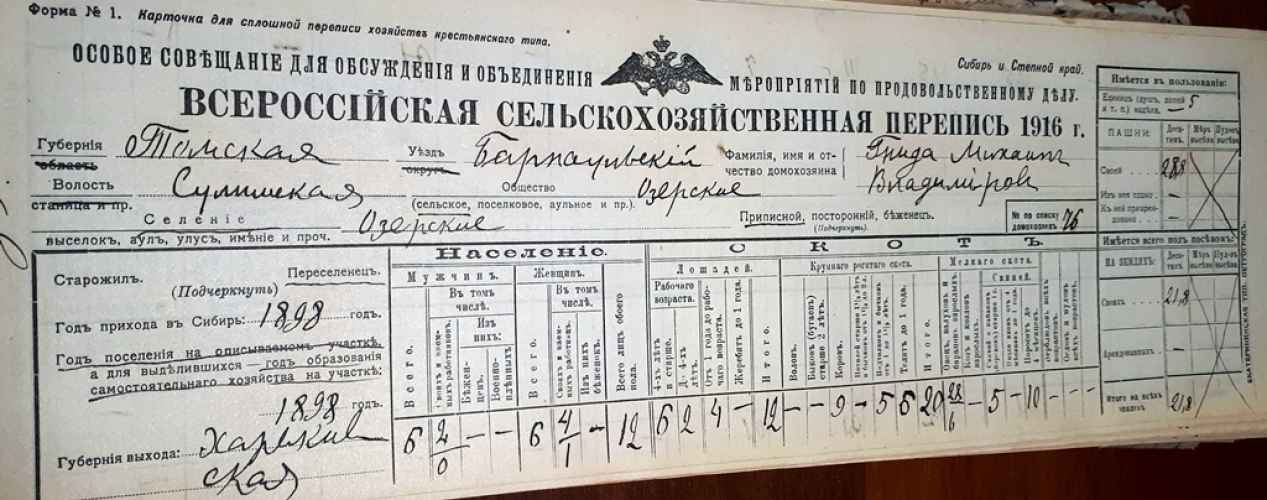 Форма № 1. Карточка для сплошной переписи хозяйствъ крестьянскаго типа.
ОСОБОЕ СОВѢЩАНІЕ ДЛЯ ОБСУЖДЕНІЯ И ОБЪЕДИНЕНІЯ МѢРОПРІЯТІЙ ПО ПРОДОВОЛЬСТВЕННОМУ ДѢЛУ.
Сибирь и Степной край.
ВСЕРОССІЙСКАЯ СЕЛЬСКОХОЗЯЙСТВЕННАЯ ПЕРЕПИСЬ 1916 г.
Губернія Томская Уѣздъ Барнаульскій Фамилія, имя и от- Гнида Михаилъ
область округъ. чество домохозяина Владиміров
Волость Сумишская Общество Озерские
станица и пр. (сельское, поселковое, аульное и пр.).
Селеніе Озерские Приписной, посторонній, бѣженецъ. № по списку 76
выселокъ, аулъ, улусъ, имѣніе и проч. (Подчеркнуть). домохозяевъ
Старожилъ. Переселенецъ.
(Подчеркнуть)
Годъ прихода въ Сибирь: 1898 годъ.
Годъ поселенія на описываемомъ участкѣ,
а для выдѣлившихся — годъ образованія
самостоятельнаго хозяйства на участкѣ:
1898 годъ.
Губернія выхода: Харьков
ская
Населеніе.
Мужчинъ. Женщинъ.
Въ томъ числѣ. Въ томъ числѣ.
Изъ нихъ:
Всего.
Бѣжен-цевъ.
Военно-плѣнныхъ
Всего.
Изъ нихъ бѣженокъ.
Всего лицъ обоего пола.
6 2/0 — — 6 4/1 — 12
СКОТЪ.
Лошадей. Крупнаго рогатаго скота. Мелкаго скота.
Рабочаго возраста.
Свиней.
4-хъ лѣтъ и старше.
До 4-хъ лѣтъ.
Отъ 1 года до рабо-чаго возраста.
Жеребятъ до 1 года.
Итого.
Воловъ.
Быковъ (бугаевъ) старше 2 лѣтъ.
Коровъ.
Телятъ до 1 года.
Итого.
6 2 4 — 12 — — 9 — 5 6 20 28/6 — 5 — 10 — — —
Имѣется въ пользованіи:
Единицъ (душъ, паевъ и т. п.) надѣла. 5
ПАШНИ: Деся-тинъ.
Своей 28,8
Имѣется всего подъ посѣвомъ:
НА ЗЕМЛЯХЪ: Деся-тинъ.
Своихъ 21,8
Арендованныхъ —
Итого на всѣхъ земляхъ 21,8
ЕКАТЕРИНИНСКАЯ ТИП. ПЕТРОГРАДЪ.